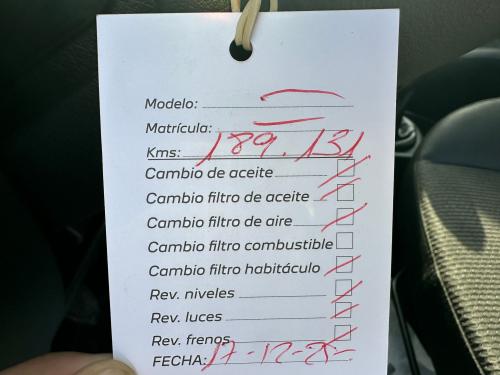 Modelo:
Matrícula:
Kms: 189.131
Cambio de aceite
Cambio filtro de aceite
Cambio filtro de aire
Cambio filtro combustible
Cambio filtro habitáculo
Rev. niveles
Rev. luces
Rev. frenos
FECHA: 17-12-25-